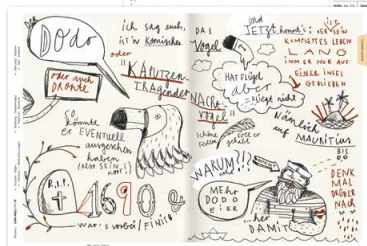 DER
Dodo
oder auch
DRONTE
ich sag euch,
ist 'n komischer
oder
"KAPUZEN-
TRAGENDER
NACHT-
VOGEL"
SO
KÖNNTE
er EVENTUELL
ausgesehen
haben
R.I.P.
1690
war's vorbei / FINITO
DAS
VOGEL
und
JETZT kommt's:
HAT FLÜGEL
aber
fliegt nicht
schöne
Federn
gehabt
IST
ER SEIN
KOMPLETTES LEBEN
LANG
IMMER NUR AUF
EINER INSEL
GEBLIEBEN
Nämlich
auf MAURITIUS
BIS
WARUM?!!
MEHR
DODO
EIER
...her
DAMIT
DENK
MAL
DRÜBER
NACH